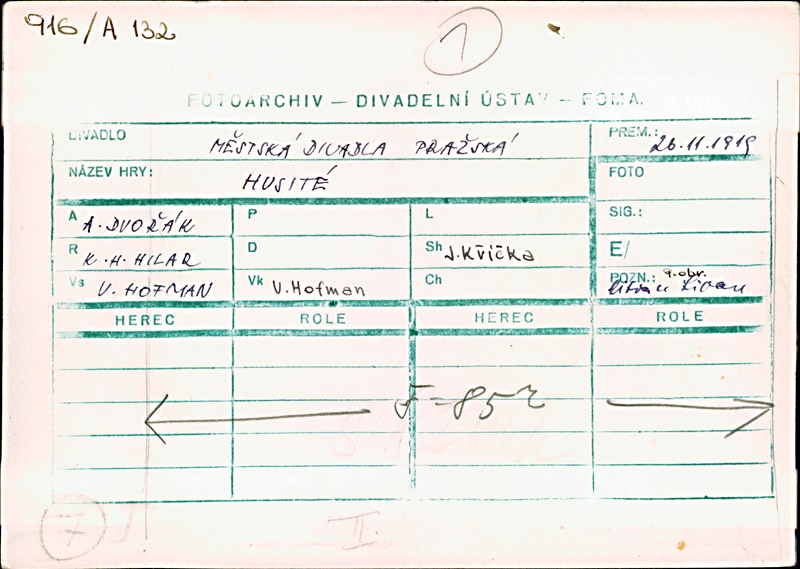 916/A 132
1
FOTOARCHIV — DIVADELNÍ ÚSTAV — FOMA.
DIVADLO MĚSTSKÁ DIVADLA PRAŽSKÁ
PREM.: 26.11.1919
NÁZEV HRY: HUSITÉ
FOTO
A A. DVOŘÁK P L SIG.:
R K. H. HILAR D Sh J. Křička E/
Vs V. HOFMAN Vk V. Hofman Ch POZN.: 9. obr.
HEREC ROLE HEREC ROLE
F = 85
7
II.